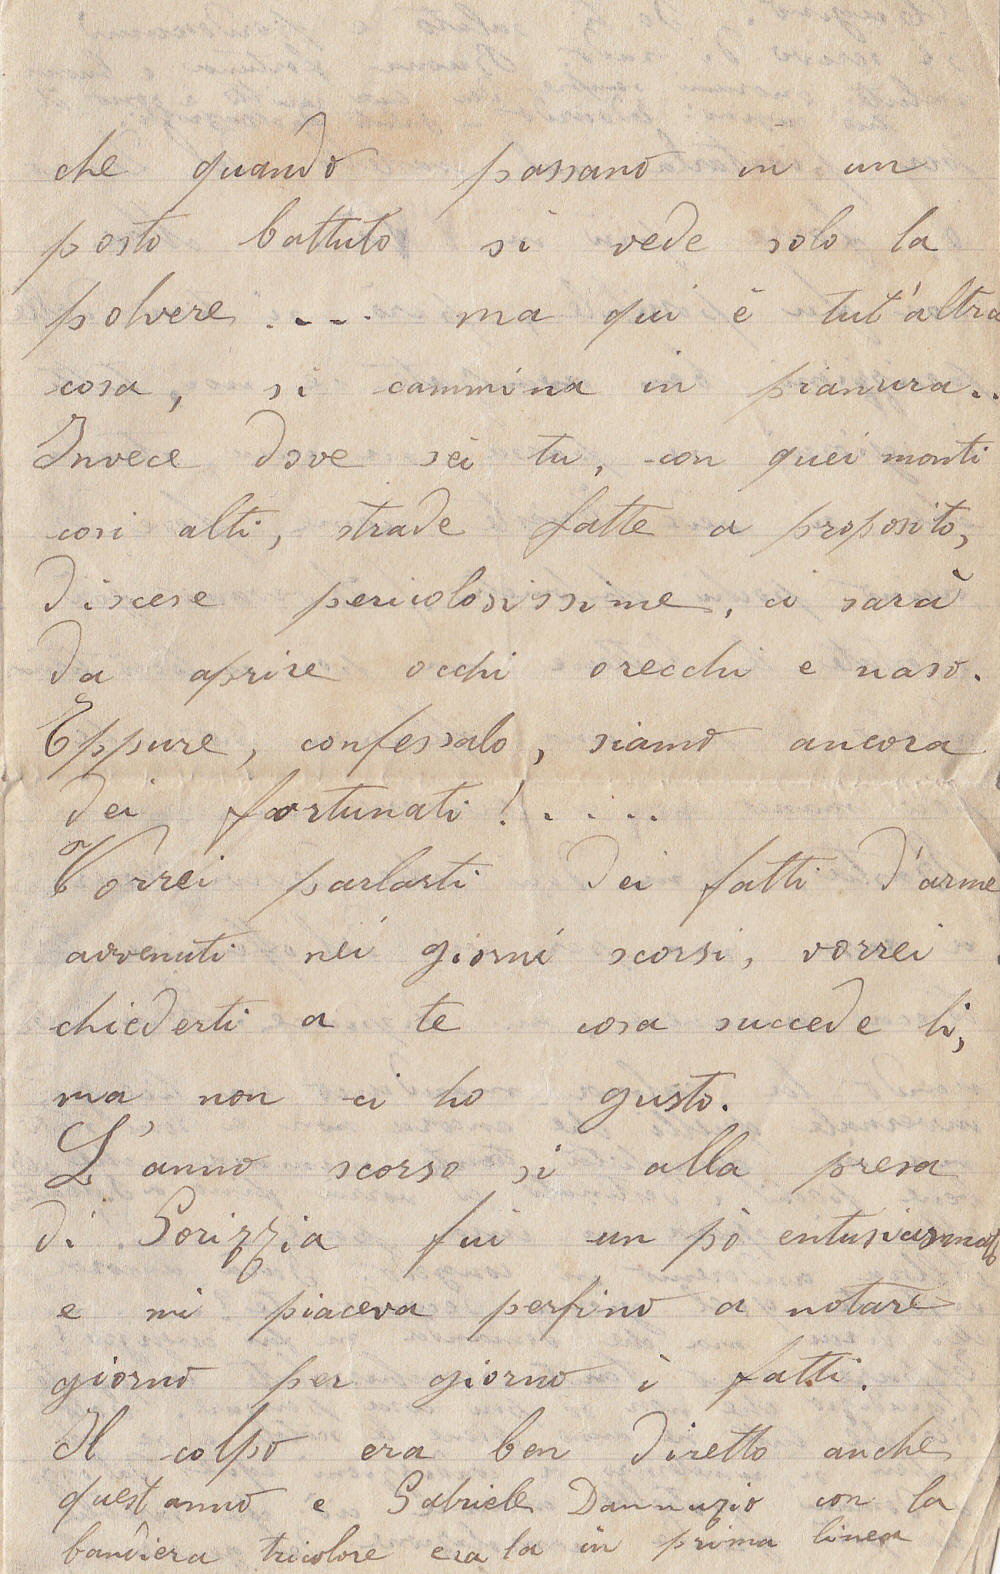 che quando passano in un
posto battuto si vede solo la
polvere .... ma qui è tut'altra
cosa, si cammina in pianura..
Invece dove sei tu, con quei monti
cosi alti, strade fatte a proposito,
discese pericolosissime, ci sarà
da aprire occhi orecchi e naso.
Eppure, confessalo, siamo ancora
dei fortunati! ....
Vorrei parlarti dei fatti d'arme
avvenuti nei giorni scorsi, vorrei
chiederti a te cosa succede lì,
ma non ci ho gusto.
L'anno scorso si alla presa
di Gorizzia fui un pò entusiasmato
e mi piaceva perfino a notare
giorno per giorno i fatti.
Il colpo era ben diretto anche
quest anno e Gabriele Dannuzio con la
bandiera tricolore era la in prima linea